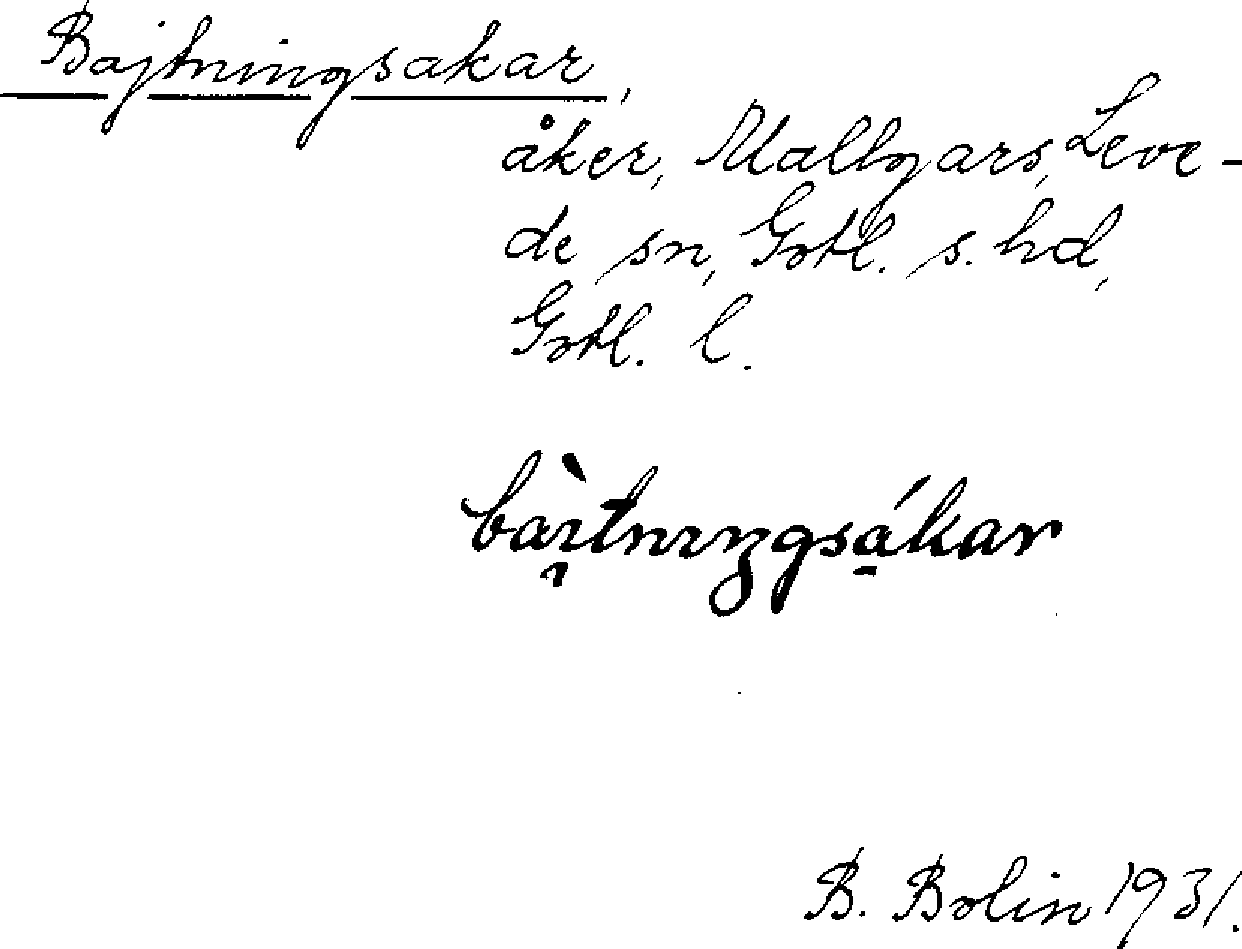 Bajtningsakar,
åker, Mallgars, Leve-
de sn, Gotl. s. hd,
Gotl. l.
B. Bolin 1931.